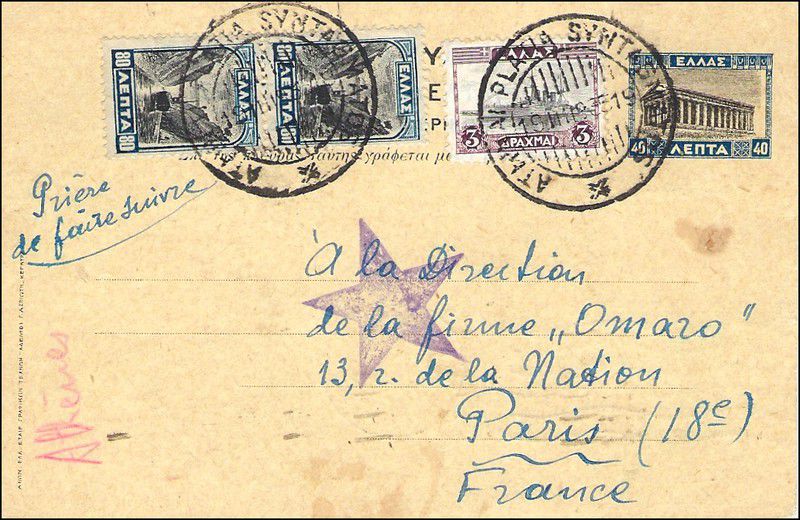 80 ΛΕΠΤΑ 80
ΕΛΛΑΣ
ΛΕΠΤΑ
ΕΛΛΑΣ
ΕΛΛΑΣ
3 ΔΡΑΧΜΑΙ 3
ΕΛΛΑΣ
40 ΛΕΠΤΑ 40
PLATIA SYNTAGMATOS
γράφεται
Prière
de faire suivre
À la Direction
de la firme „Omaro"
13, r. de la Nation
Paris (18e)
France
Athènes